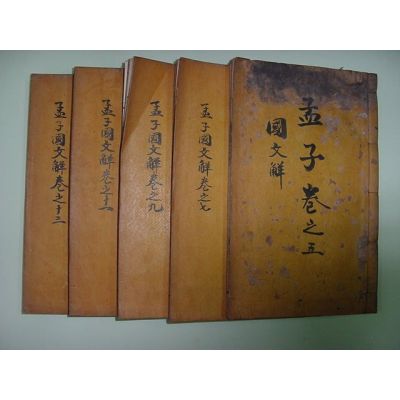 孟子卷之五
國文解
孟子國文解卷之七
孟子國文解卷之九
孟子國文解卷之十一
孟子國文解卷之十二